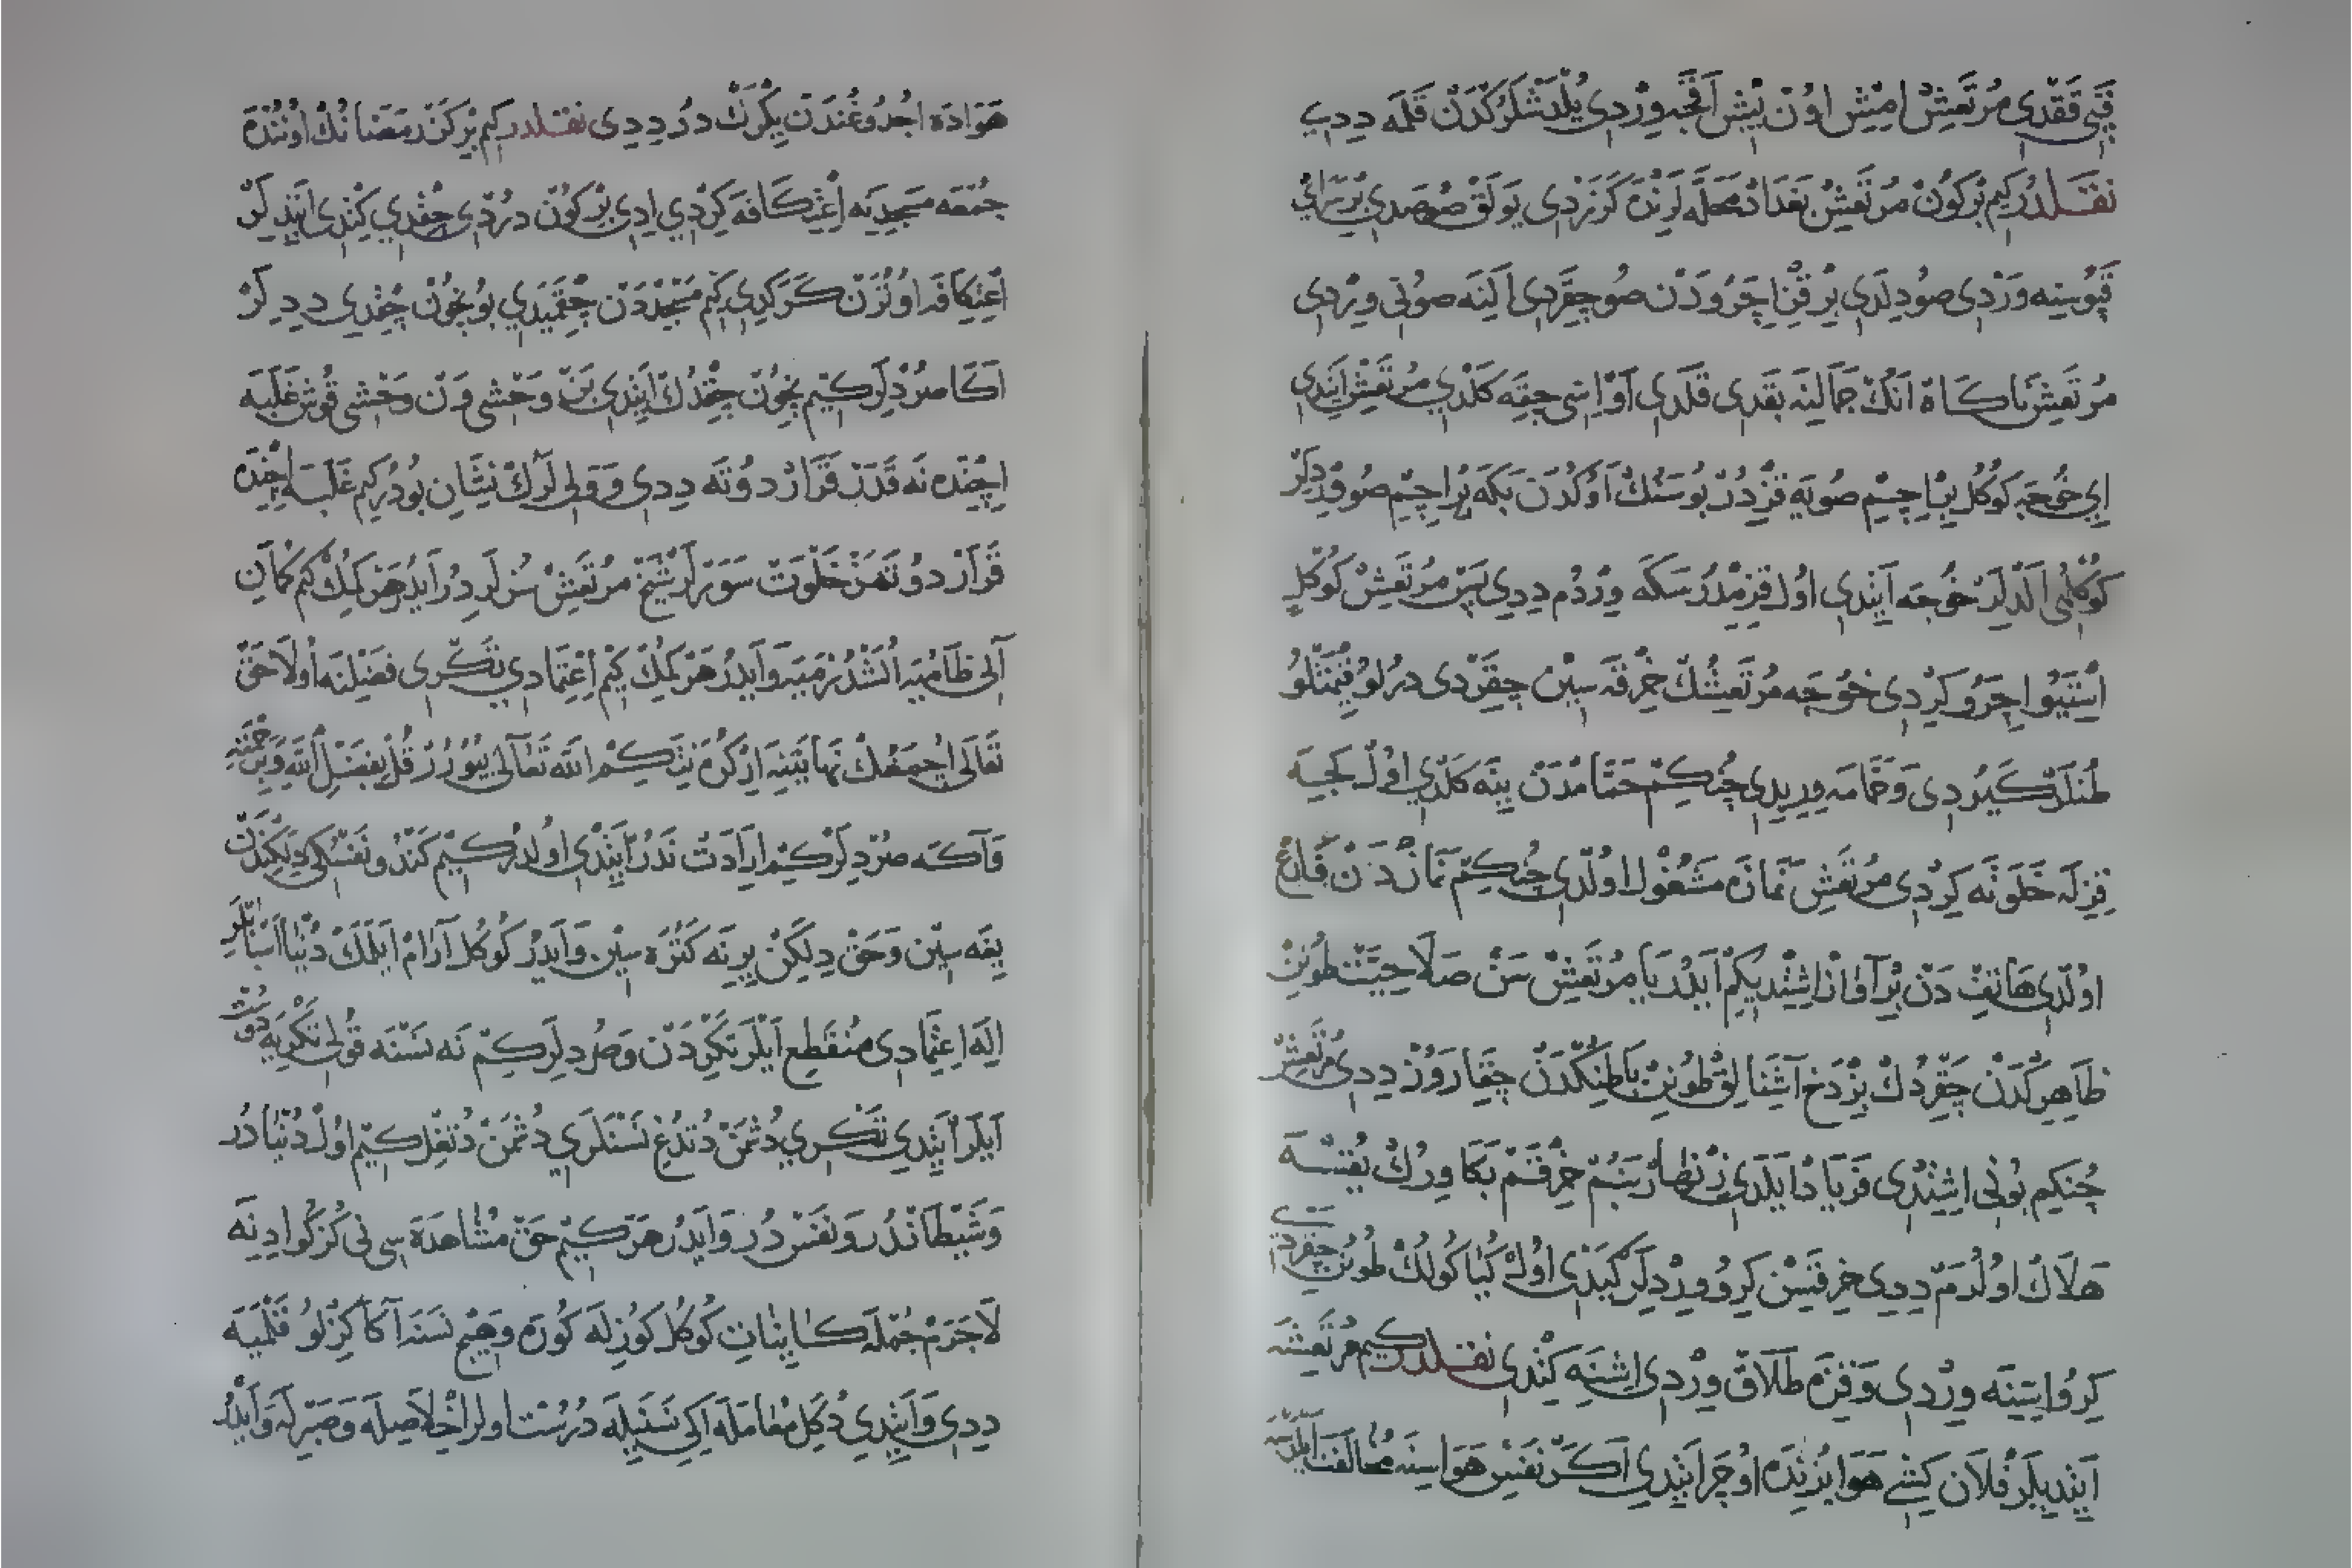 قَپُی قَقْدِی مُرْتَعِشْ اِمِشْ اوُنْ بِیشْ اَقْچَه وِرْدِی یُلْدَشْلَرُکْدَنْ قَلْمَه دِدِی
نقلدر کِمْ بِرْ کُونْ مُرْتَعِشْ بَغْدَادْ مَحَلَّه لَرِنْدَه کَزَرْدِی یُولَقْ صُوصَدِی بِرْ سَرَایْ
قَپُوسِنَه وَرْدِی صُو دِلَدِی بِرْ قِزْ اِچَرُودَنْ صُو چِقَرْدِی اَلِنَه صُویِی وِیرْدِی
مُرْتَعِشْ نَاکَاهْ اَنُكْ جَمَالِنَه بَقَدِی قَلَدِی اَوْ اِسِی چِقَه کَلْدِی مُرْتَعِشْ اَیِتْدِی
اِی خُوجَه کُوکُل بِرْ اِچِیمْ صُویَه قِزْدُرْ بُو سَنُكْ اَوُکْدَنْ بَکَه بِرْ اِچِیمْ صُو وِرْدِلَرْ
کُوکْلُمِی اَلْدِلَرْ خُوجَه اَیِتْدِی اُولْ قِزُمْدُرْ سَکَه وِرْدُمْ دِدِی پَسْ مُرْتَعِشْ کُوکُلِ
اِسْتَیُو اِچَرُو کِرْدِی خُوجَه مُرْتَعِشُكْ خِرْقَه سِینْ چِقَرْدِی دُرْلُو قِیمَتْلُو
طُنْلَرْ کَیُرْدِی وَ حَمَّامَه وِرِیدِی چُنْکِمْ حَمَّامْدَنْ یِنَه کَلْدِی اُولْ کِجَه
قِزِلَه خَلْوَتَه کِرْدِی مُرْتَعِشْ نَمَازَه مَشْغُولْ اُولْدِی چُنْکِمْ نَمَازْدَنْ فَارِغْ
اُولْدِی هَاتِفْ دَنْ بِرْ آوَازْ اِشِتْدِیکِمْ اَیْدُرْ یَا مُرْتَعِشْ سَنْ صَلَاحِیَّتْ طُونِنْ
ظَاهِرِکْدَنْ چِقَرْدُكْ بِزْ دَخِ آشِنَالِقْ طُونِنْ بَاطِنُکْدَنْ چِقَارَوُزْ دِدِی مُرْتَعِشْ
چُنکِیم بُونِی اِشِتْدِی فَرْیَادْ اَیْلَدِی زِنْهَارْ بَنُمْ خِرْقَمْ بَکَا وِرُكْ یُقْسَه
هَلَاكْ اُولُرَمْ دِدِی خِرْقَسِنْ کِرُو وِرْدِلَرْ کَیْدِی اُولْ کِیَا کُولُكْ طُونِنْ چِقَرْدِی
کِرُو اِسِنَه وِرْدِی وَ قِزَه طَلَاقْ وِرْدِی اِشِنَه کِتْدِی نقلدر کِیمْ مُرْتَعِشَه
اَیِتْدِیلَرْ فُلَانْ کِشِی هَوَا یُزِنْدَه اُوچَرْ اَیِتْدِی اَکَرْ نَفْسْ هَوَاسِنَه مُخَالَفَتْ
هَوَادَه اُچْدُوغُنْدَنْ یِکْرَكْ دُرْ دِدِی نقلدر کِمْ بِرْ کَزْ رَمَضَانُكْ اوُنُنْدَه
جُمْعَه مَسْجِدِیَه اِعْتِکَافَه کِرْدِی اِدِی بِرْ کُونْ دُرْدِی چِقْدِی کِتْدِی اَیِتْدِلَرْ
اِعْتِکَافَه اوُتُرَنْ کَرَکِدِی کِمْ مَسْجِدْدَنْ چِقْمَیَدِی بُو نِچُونْ چِقْدِی دِدِلَرْ
اَکَا صُرْدِلَرْ کِیمْ نِچُونْ چِقْدُكْ اَیِتْدِی بَنْ وَحْشِی وَنْ وَحْشِی قُوشْ غَلَبَه
اِچِنْدَه نَه قَدَرْ قَرَارْ دُوتَه دِدِی وَ وَلِی لَرُكْ نِشَانِ بُودُرْ کِمْ غَلَبَه اِچِنْدَه
قَرَارْ دُوتْمَزْ خَلْوَتْ سَوَرْلَرْ شَیْخْ مُرْتَعِشْ سُزْلَرِدُرْ اَیْدُرْ هَرْ کِمُكْ کِمْ کُمَانِ
آلِی ظَامُیَه اُلَشْدُرْمَیَه وَ اَیْدُرْ هَرْ کِمُكْ کِمْ اِعْتِمَادِی تَکْرِی فَضْلِنَه اُولَا حَقّ
تَعَالَی اُچْمَغُكْ نَهَایَتِنَه اِرْکُرَه نِتَکِمْ اللّٰه تَعَالَی بُیُورُرْ قُلْ بِفَضْلِ اللّٰهِ وَبِرَحْمَتِهِ
وَ آکَه صُرْدِلَرْ کِیمْ اِرَادَتْ نَدُرْ اَیِتْدِی اُولْدُرْ کِیمْ کَنْدُو نَفْسُكِ دِلَکِنْدَنْ
یِغَه سِینْ وَ حَقْ دِلَکِنْ یِرِنَه کَتُرَه سِینْ وَ اَیْدُرْ کُوکُلْ آرَامْ اَیْلَمَكْ دُنْیَا اَسْبَابْلَرِ
اِلَه اِعْتِمَادِی مُنْقَطِعْ اَیْلَرْ تَکْرِدَنْ وَ صُرْدِلَرْ کِمْ نَه نَسْنَه قُولِی تَکْرِیَه دُوسْتْ
اَیْلَرْ اَیِتْدِی تَکْرِی دُشْمَنْ دُتْدُغِ نَسْنَلَرِی دُشْمَنْ دُتْمَغِلْ کِیمْ اُولْ دُنْیَادُرْ
وَ شَیْطَانْدُرْ وَ نَفْسْ دُرْ وَ اَیْدُرْ هَرْ کِیمْ حَقْ مُشَاهَدَه سِی نِی کُزْکُو اِدِنَه
لَاجَرَمْ جُمْلَه کَایِنَاتِ کُوکُلْ کُوزِلَه کُورَه وَ هِیچْ نَسْنَه آکَا کِزْلُو قَلْمَیَه
دِدِی وَ اَیِتْدِی دُکَلِ مُعَامَلَه اِکِی نَسْنَیِلَه دُرُسْتْ اُولُرْ اِخْلَاصِلَه وَ صَبْرِلَه وَ اَیْدُرْ